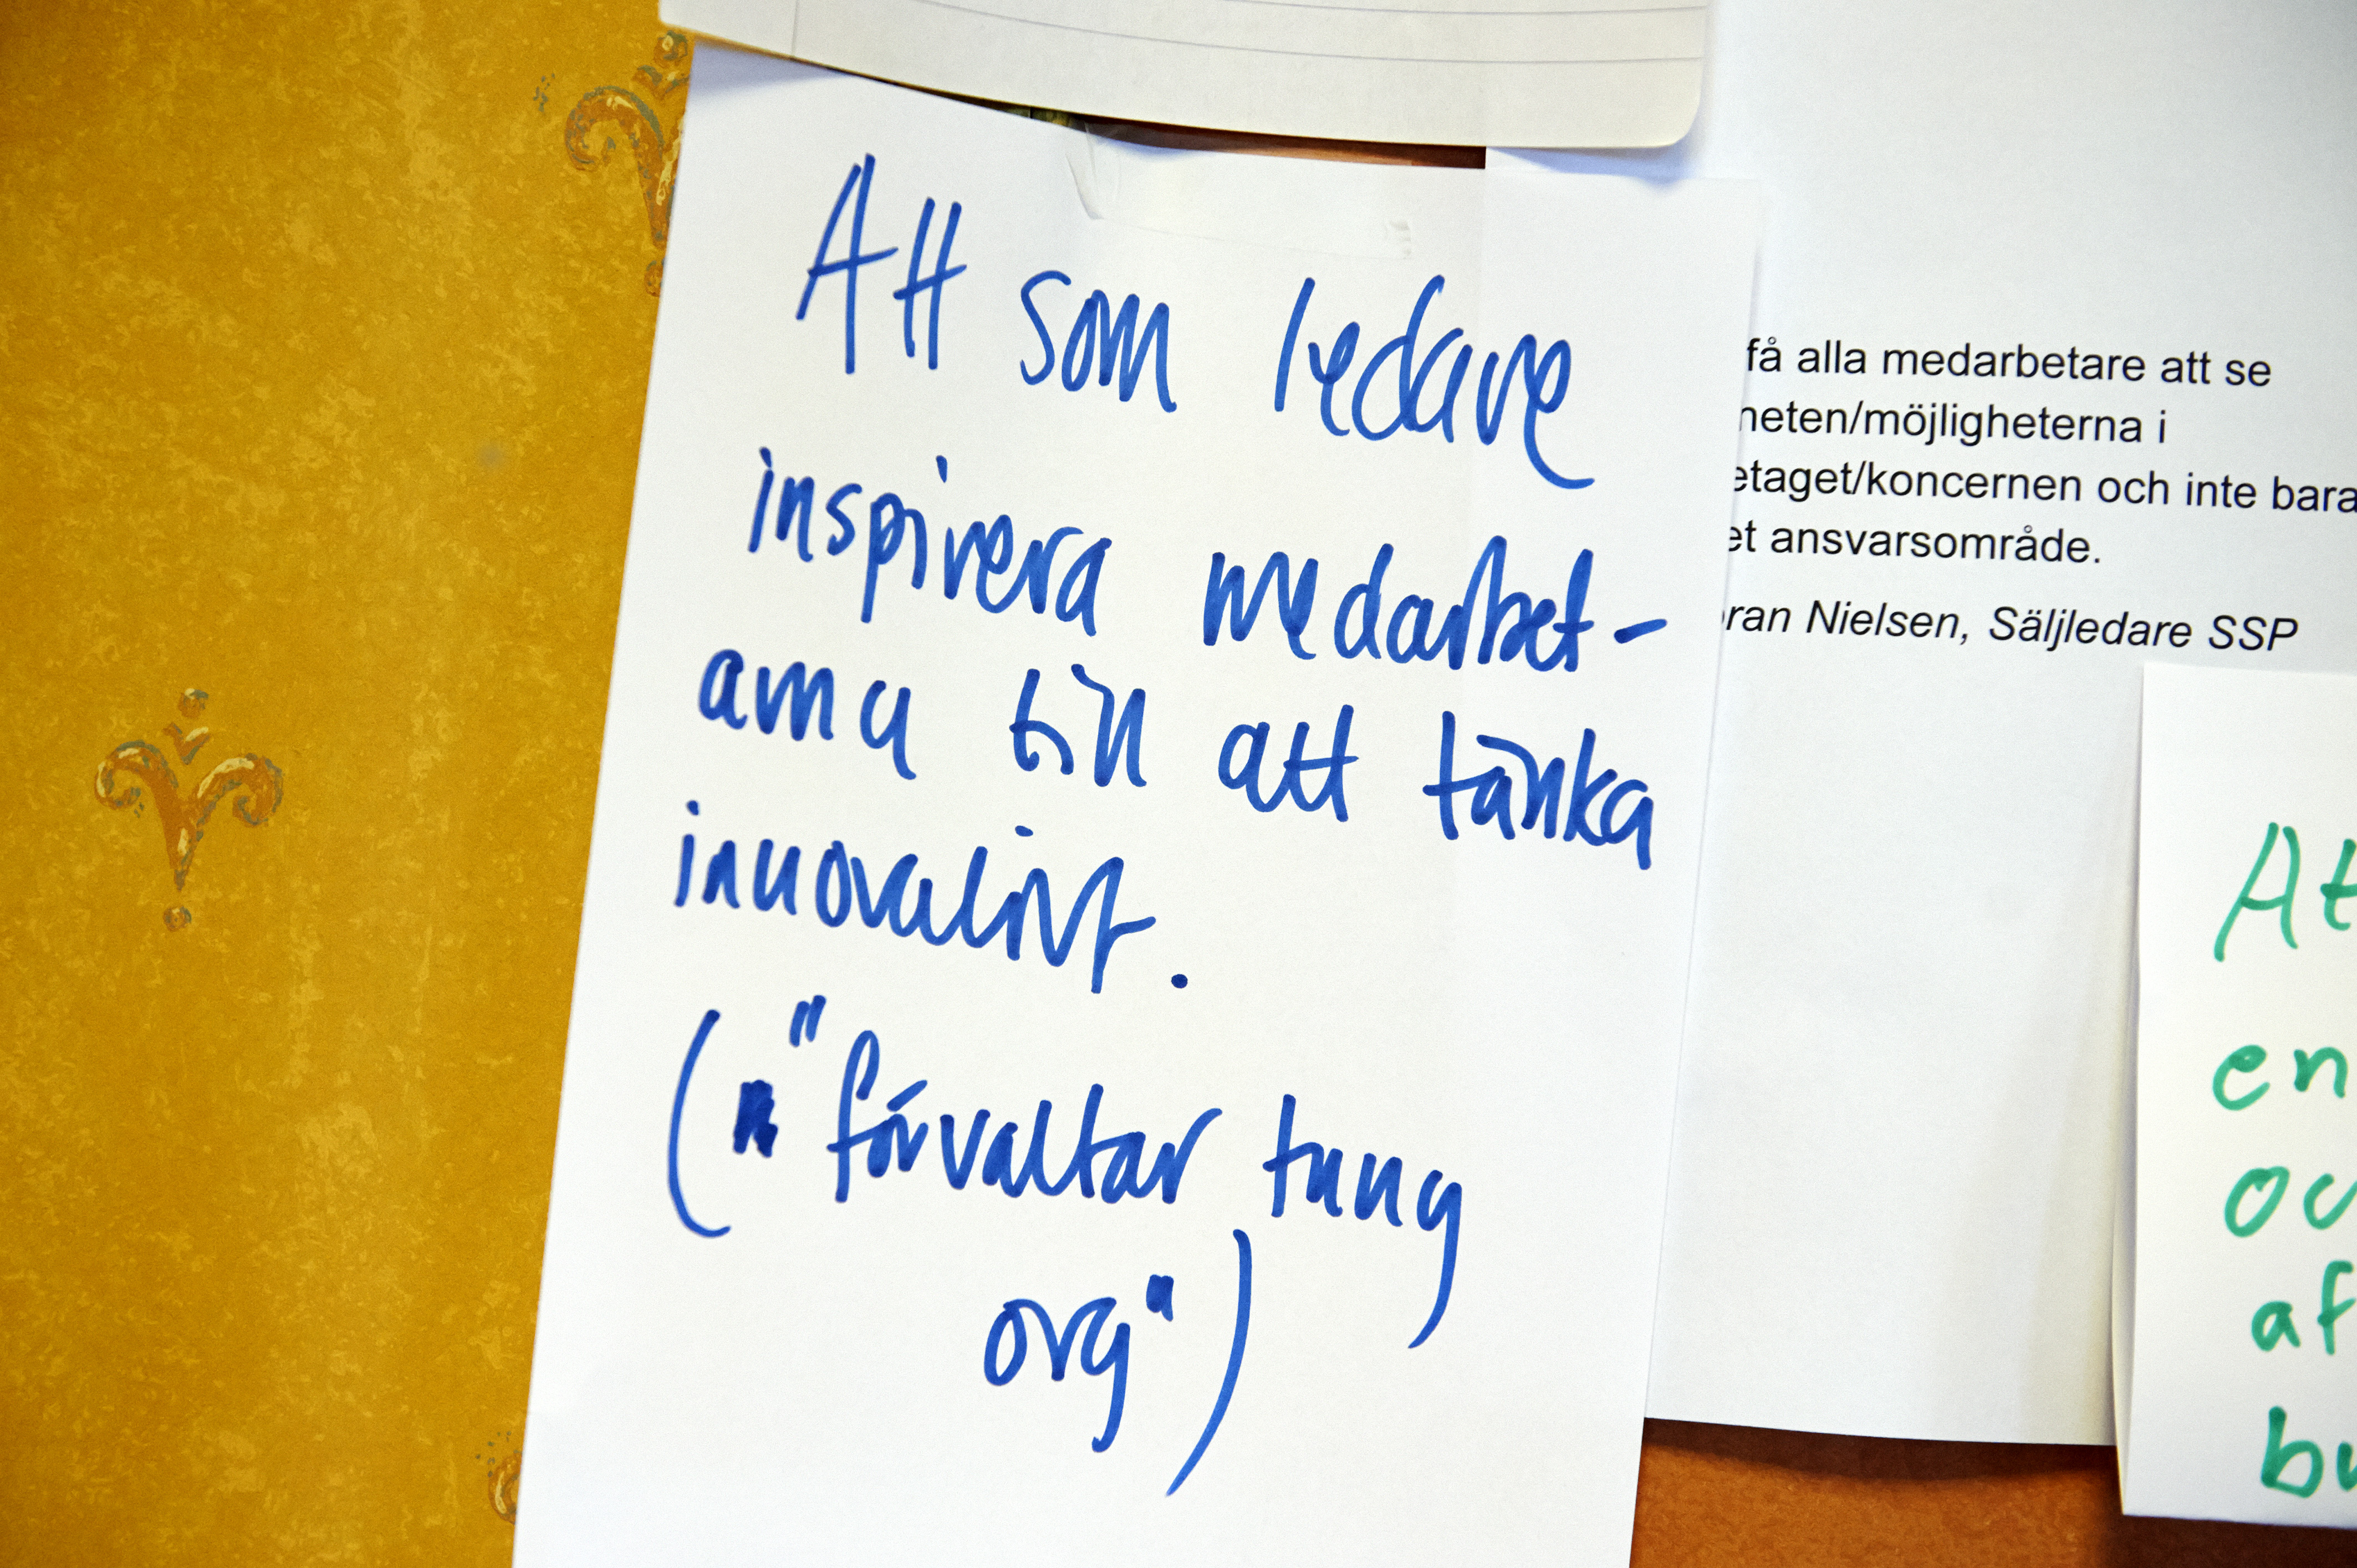 Att som ledare
inspirera medarbet-
arna till att tänka
innovativt.
("förvaltar tung
org")
få alla medarbetare att se
heten/möjligheterna i
etaget/koncernen och inte bara
et ansvarsområde.
ran Nielsen, Säljledare SSP
At
en
oc
af
bu